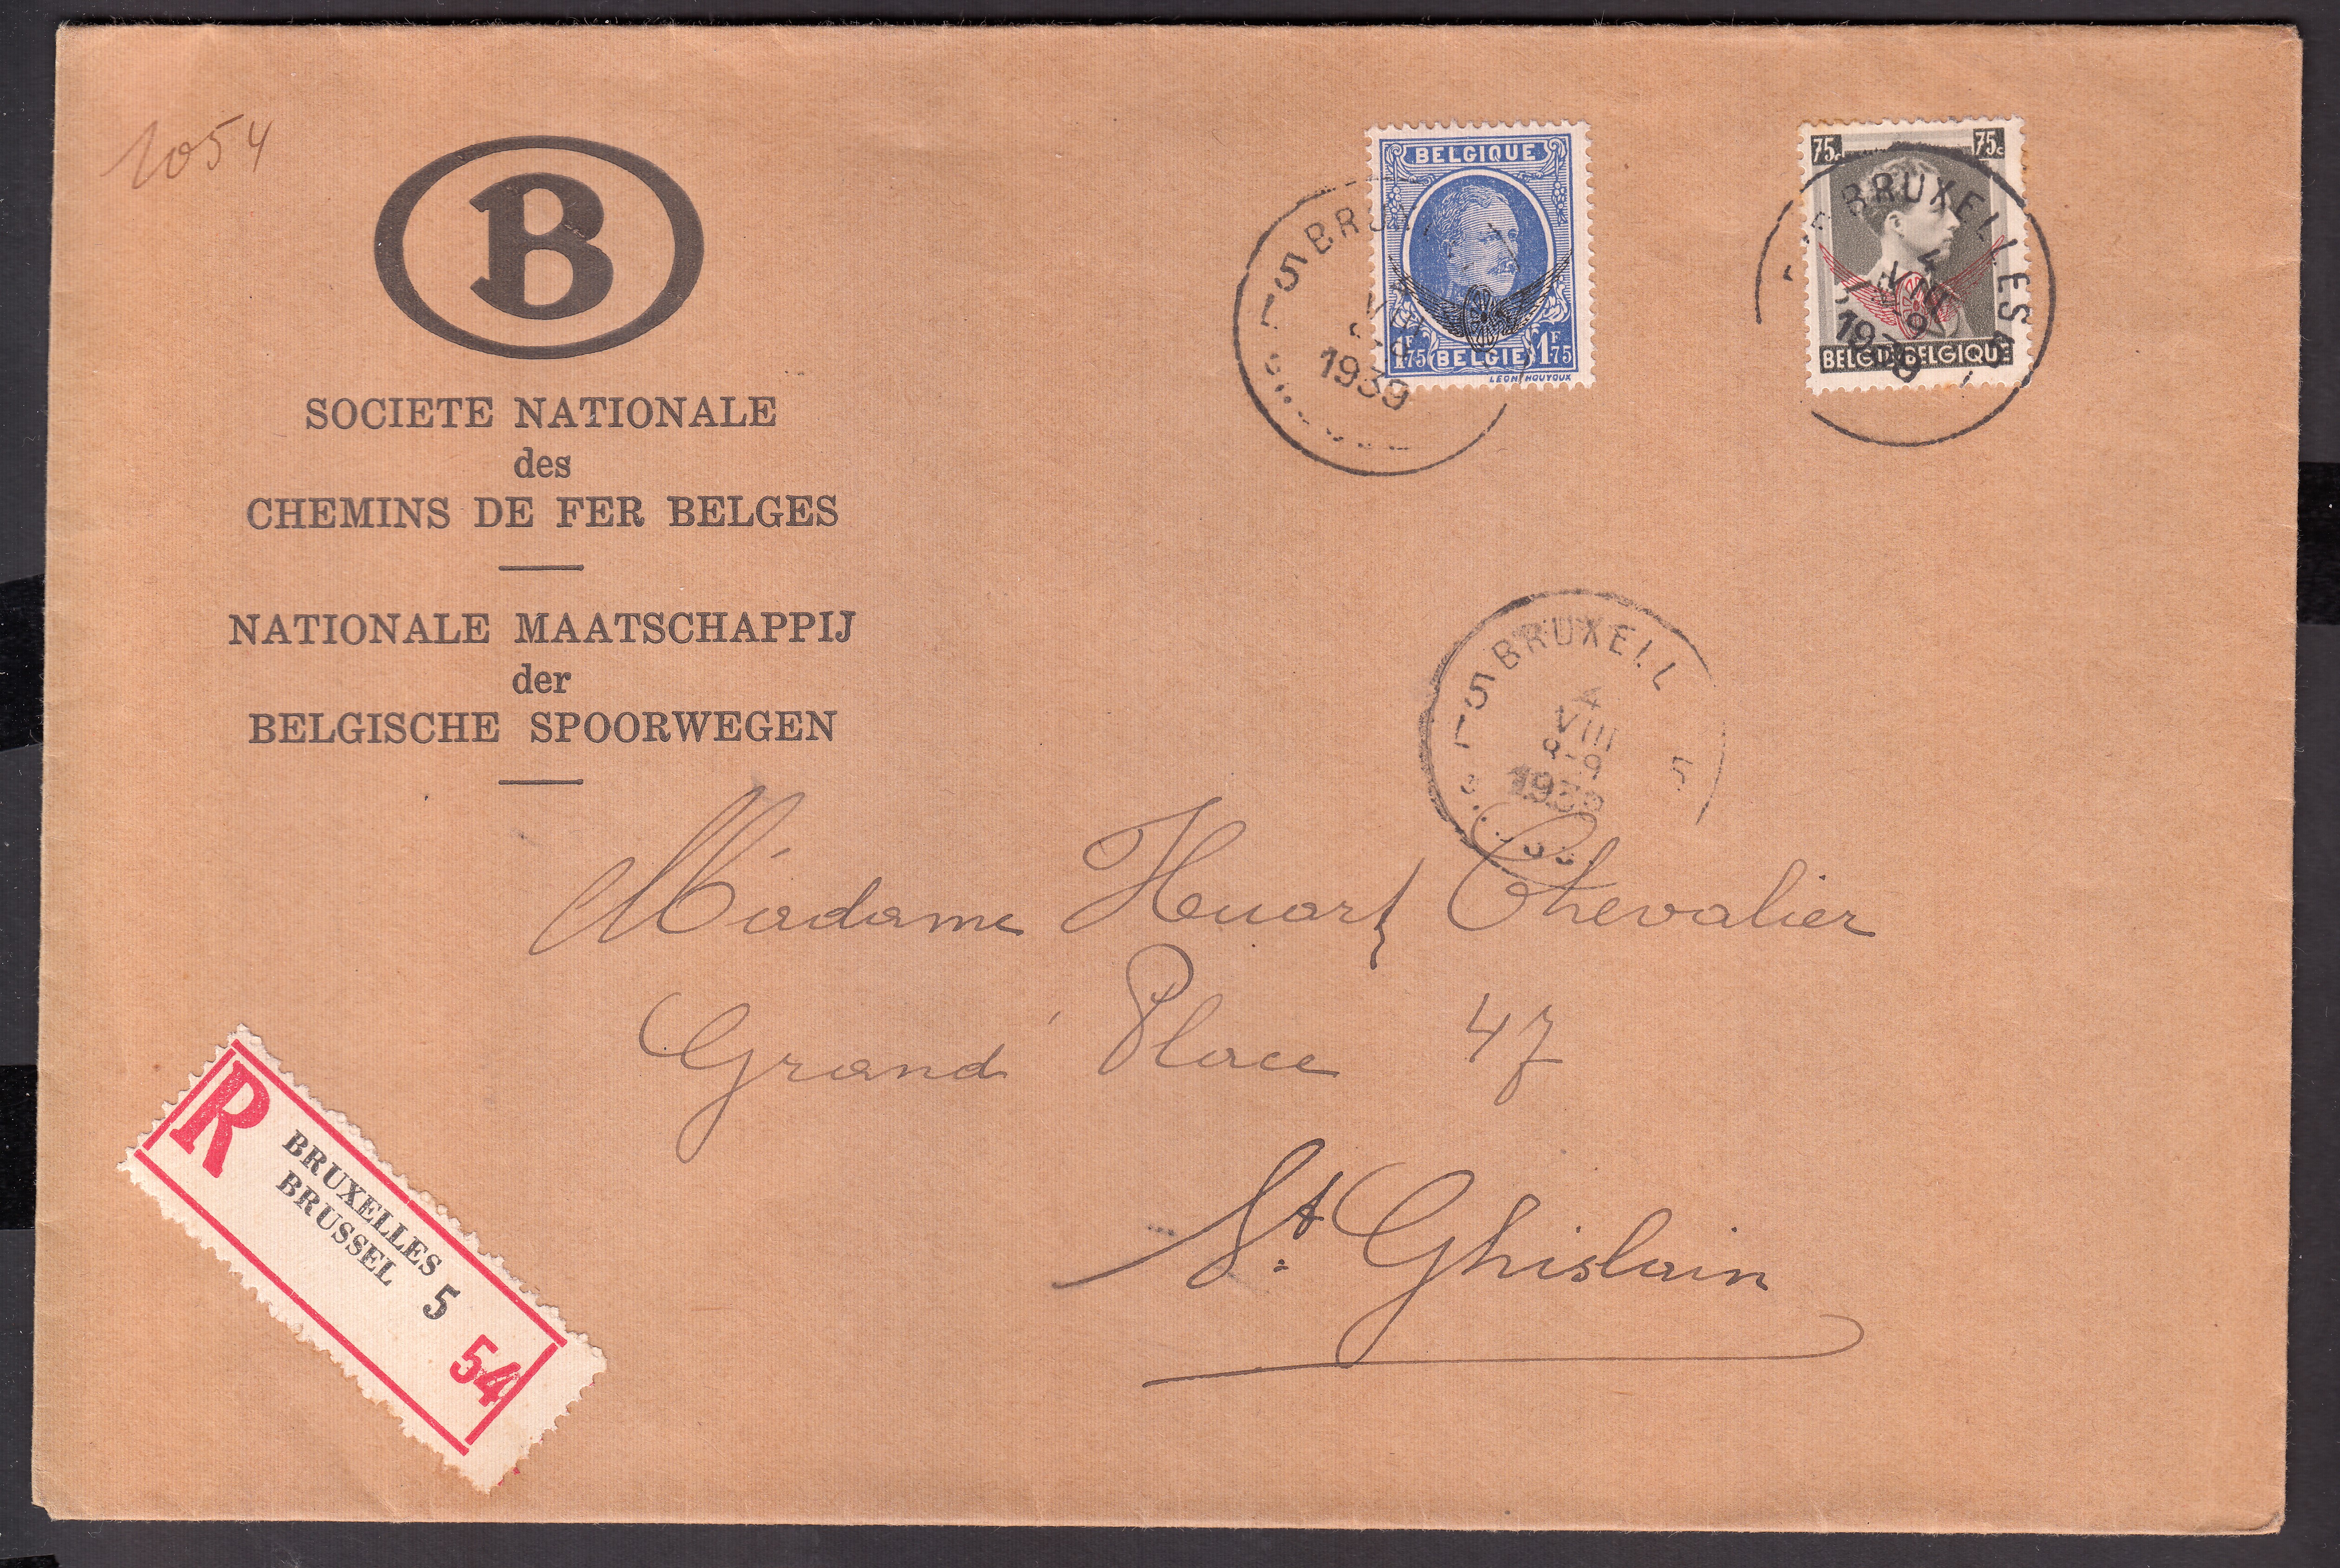 1054
B
SOCIETE NATIONALE
des
CHEMINS DE FER BELGES
NATIONALE MAATSCHAPPIJ
der
BELGISCHE SPOORWEGEN
BELGIQUE
1F75 BELGIE 1F75
LEON HOUYOUX
5 BRUX
VIII
1939
75c 75c
BELGIË-BELGIQUE
BRUXELLES
4
VIII
1939
5 BRUXELL 5
4
VIII
8-9
1939
Madame Huart Chevalier
Grand' Place 47
St. Ghislain
R
BRUXELLES
BRUSSEL 5
54